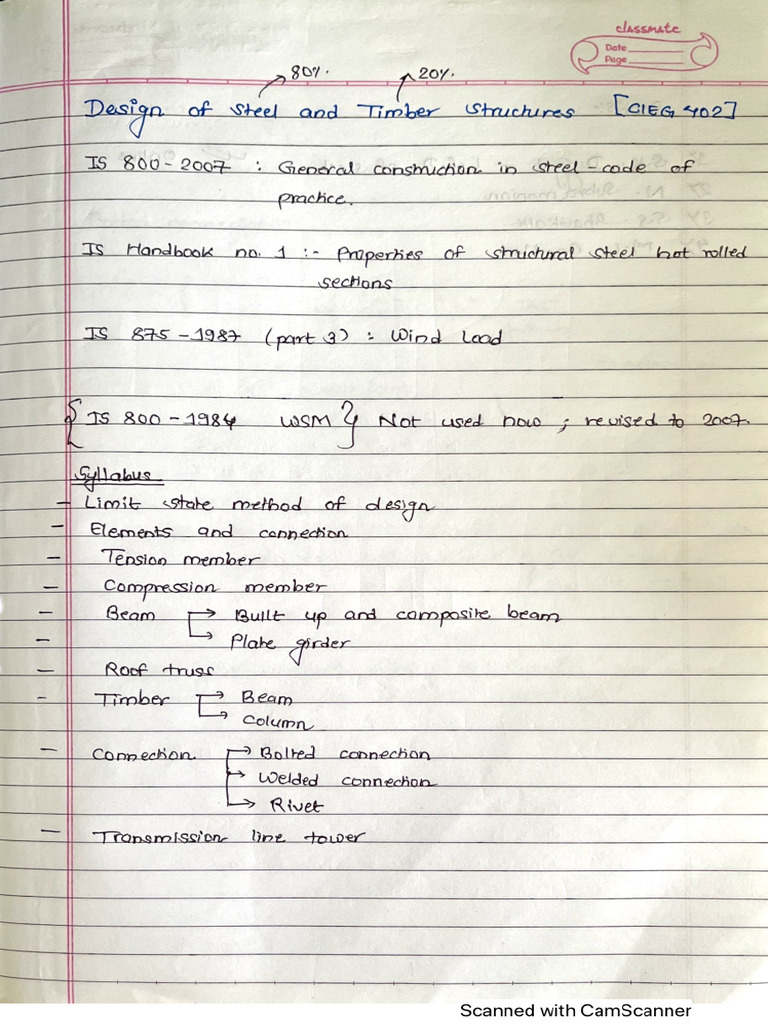 classmate
Date
Page
80%. 20%.
Design of Steel and Timber Structures [CIEG 402]
IS 800-2007 : General construction in steel-code of
practice.
IS Handbook no. 1 :- Properties of structural steel hot rolled
sections
IS 875-1987 (part 3) : Wind Load
{ IS 800-1984 WSM } Not used now ; revised to 2007.
Syllabus
- Limit state method of design
- Elements and connection
- Tension member
- Compression member
- Beam → Built up and composite beam
- → Plate girder
- Roof truss
- Timber → Beam
→ Column
- Connection → Bolted connection
→ Welded connection
→ Rivet
- Transmission line tower
Scanned with CamScanner